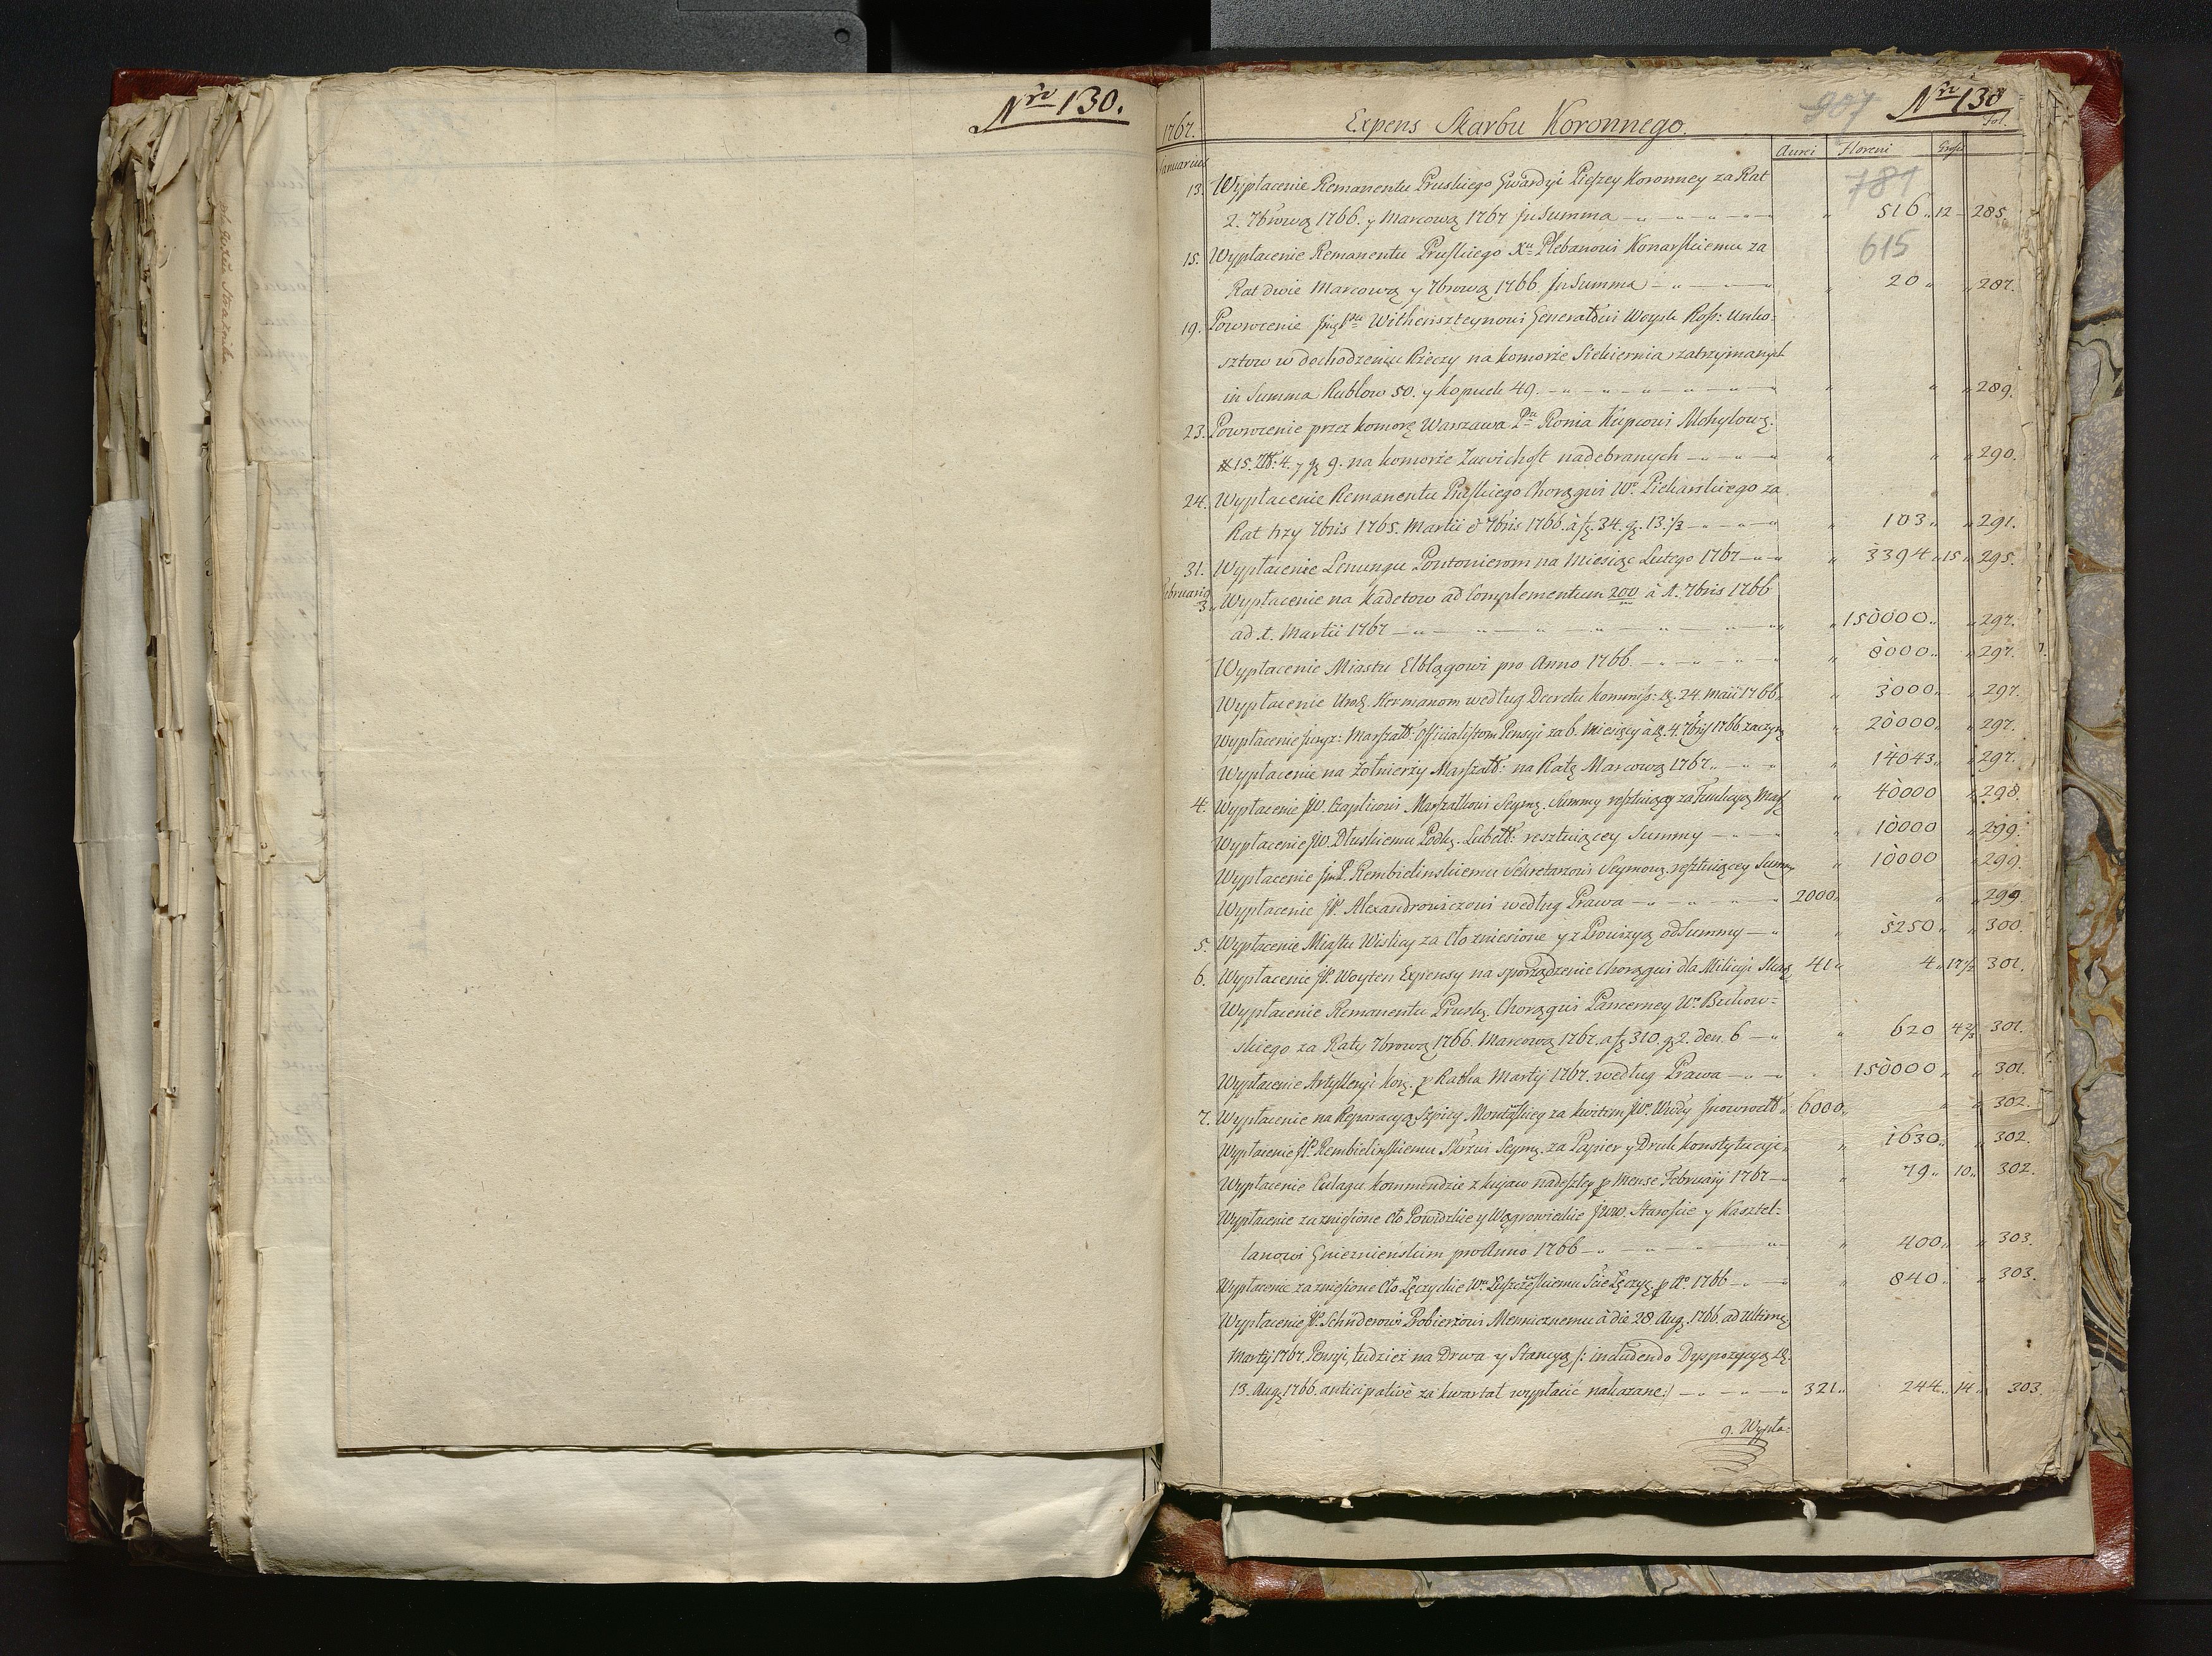 Nro 130.
907 Nro 130
1767. Expens Skarbu Koronnego. Fol.
Januarius Aurei Floreni Grossi
781
13. Wypłacenie Remanentu Pruskiego Gwardyi Pieszey Koronney za Rat
2. 7brową 1766. y Marcową 1767 in Summa 516 12 285.
615
15. Wypłacenie Remanentu Pruskiego Xu Plebanowi Konarskiemu za
Rat dwie Marcową y 7brową 1766. in Summa 20 287.
19. Powrocenie Witheinszteynowi Generałowi Woysk Ross: Unko-
sztow w dochodzeniu Rzeczy na komorze Siekiernia zatrzymanych
in Summa Rublow 50. y kopuck 49. 289.
23. Powrocenie przez komorę Warszawa Pu Ronia Kupcowi Mohylowg.
# 15. Złł: 4. y gg 9. na komorze Zawichost nadebranych 290.
24. Wypłacenie Remanentu Pruskiego Chorągwi Wo Piekarskiego za
Rat trzy 7bris 1765. Martii & 7bris 1766. à fg. 34. gg. 13 1/3 103 291.
31. Wypłacenie Lenungu Pontonierom na Miesiąc Lutego 1767 3394 15 295.
Februarius
3. Wypłacenie na Kadetow ad Complementum 200 à 1. 7bris 1766
ad 1. Martii 1767 150000 297.
Wypłacenie Miastu Elblągowi pro Anno 1766. 8000 297.
Wypłacenie Urodz. Hermanom według Decretu kommiss: 24. Maii 1766. 3000 297.
Wypłacenie Marszałł: Officialistom Pensyi za 6. Miesięcy à 4. 7bris 1766. zaczyną 20000 297.
Wypłacenie na Zołnierzy Marszałł: na Ratę Marcową 1767. 14043 297.
4. Wypłacenie JW. Czaplicowi Marszałkowi Seymg. Summy resztuiącey za Funkcyą Mar 40000 298.
Wypłacenie JW. Dłuskiemu Podkg. Lubell: resztuiącey Summy 10000 299.
Wypłacenie JmP. Rembielinskiemu Sekretarzowi Seymowg. resztuiącey Summy 10000 299.
Wypłacenie JP. Alexandrowiczowi według Prawa 2000 299
5. Wypłacenie Miastu Wislicy za Cło zniesione y z Prowizyą od Summy 5250 300.
6. Wypłacenie JP. Woyten Expensy na sporządzenie Chorągwi dla Milicyi Skarg 41 4 17 1/2 301.
Wypłacenie Remanentu Pruskg. Chorągwi Pancerney Wo Bukow-
skiego za Raty 7brową 1766. Marcową 1767. a fg 310. gg 2. den. 6 620 4 2/3 301.
Wypłacenie Artylleryi kor. p Ratha Martij 1767. według Prawa 150000 301.
7. Wypłacenie na Reparacyą za kwitem JWo Wdy Jnowrocłł 6000 302.
Wypłacenie JP. Rembielinskiemu Seymg. za Papier y Druk konstytucyi 1630 302.
Wypłacenie Culagu kommendzie z kujaw nadeszłey p Mense Februarij 1767 79 10 302.
Wypłacenie za zniesione Cło Powidzkie y Wągrowieckie JWW. Staroscie y Kasztel-
lanowi Gniezninskim pro Anno 1766 400 303.
Wypłacenie za zniesione Cło Łęczyckie Wu Łuszczewskiemu Scie Łęczyc. p Ao 1766 840 303.
Wypłacenie JP. Schröderowi Probierzowi Menniczemu à die 28. Aug. 1766. ad ultimg
Martij 1767. Pensyi, tudzież na Drwa y Stancyą /: includendo Dyspozycyą
13. Augg 1766. anticipativè za kwartał wypłacić nakazane :/ 321 244 14 303.
9. Wypła: